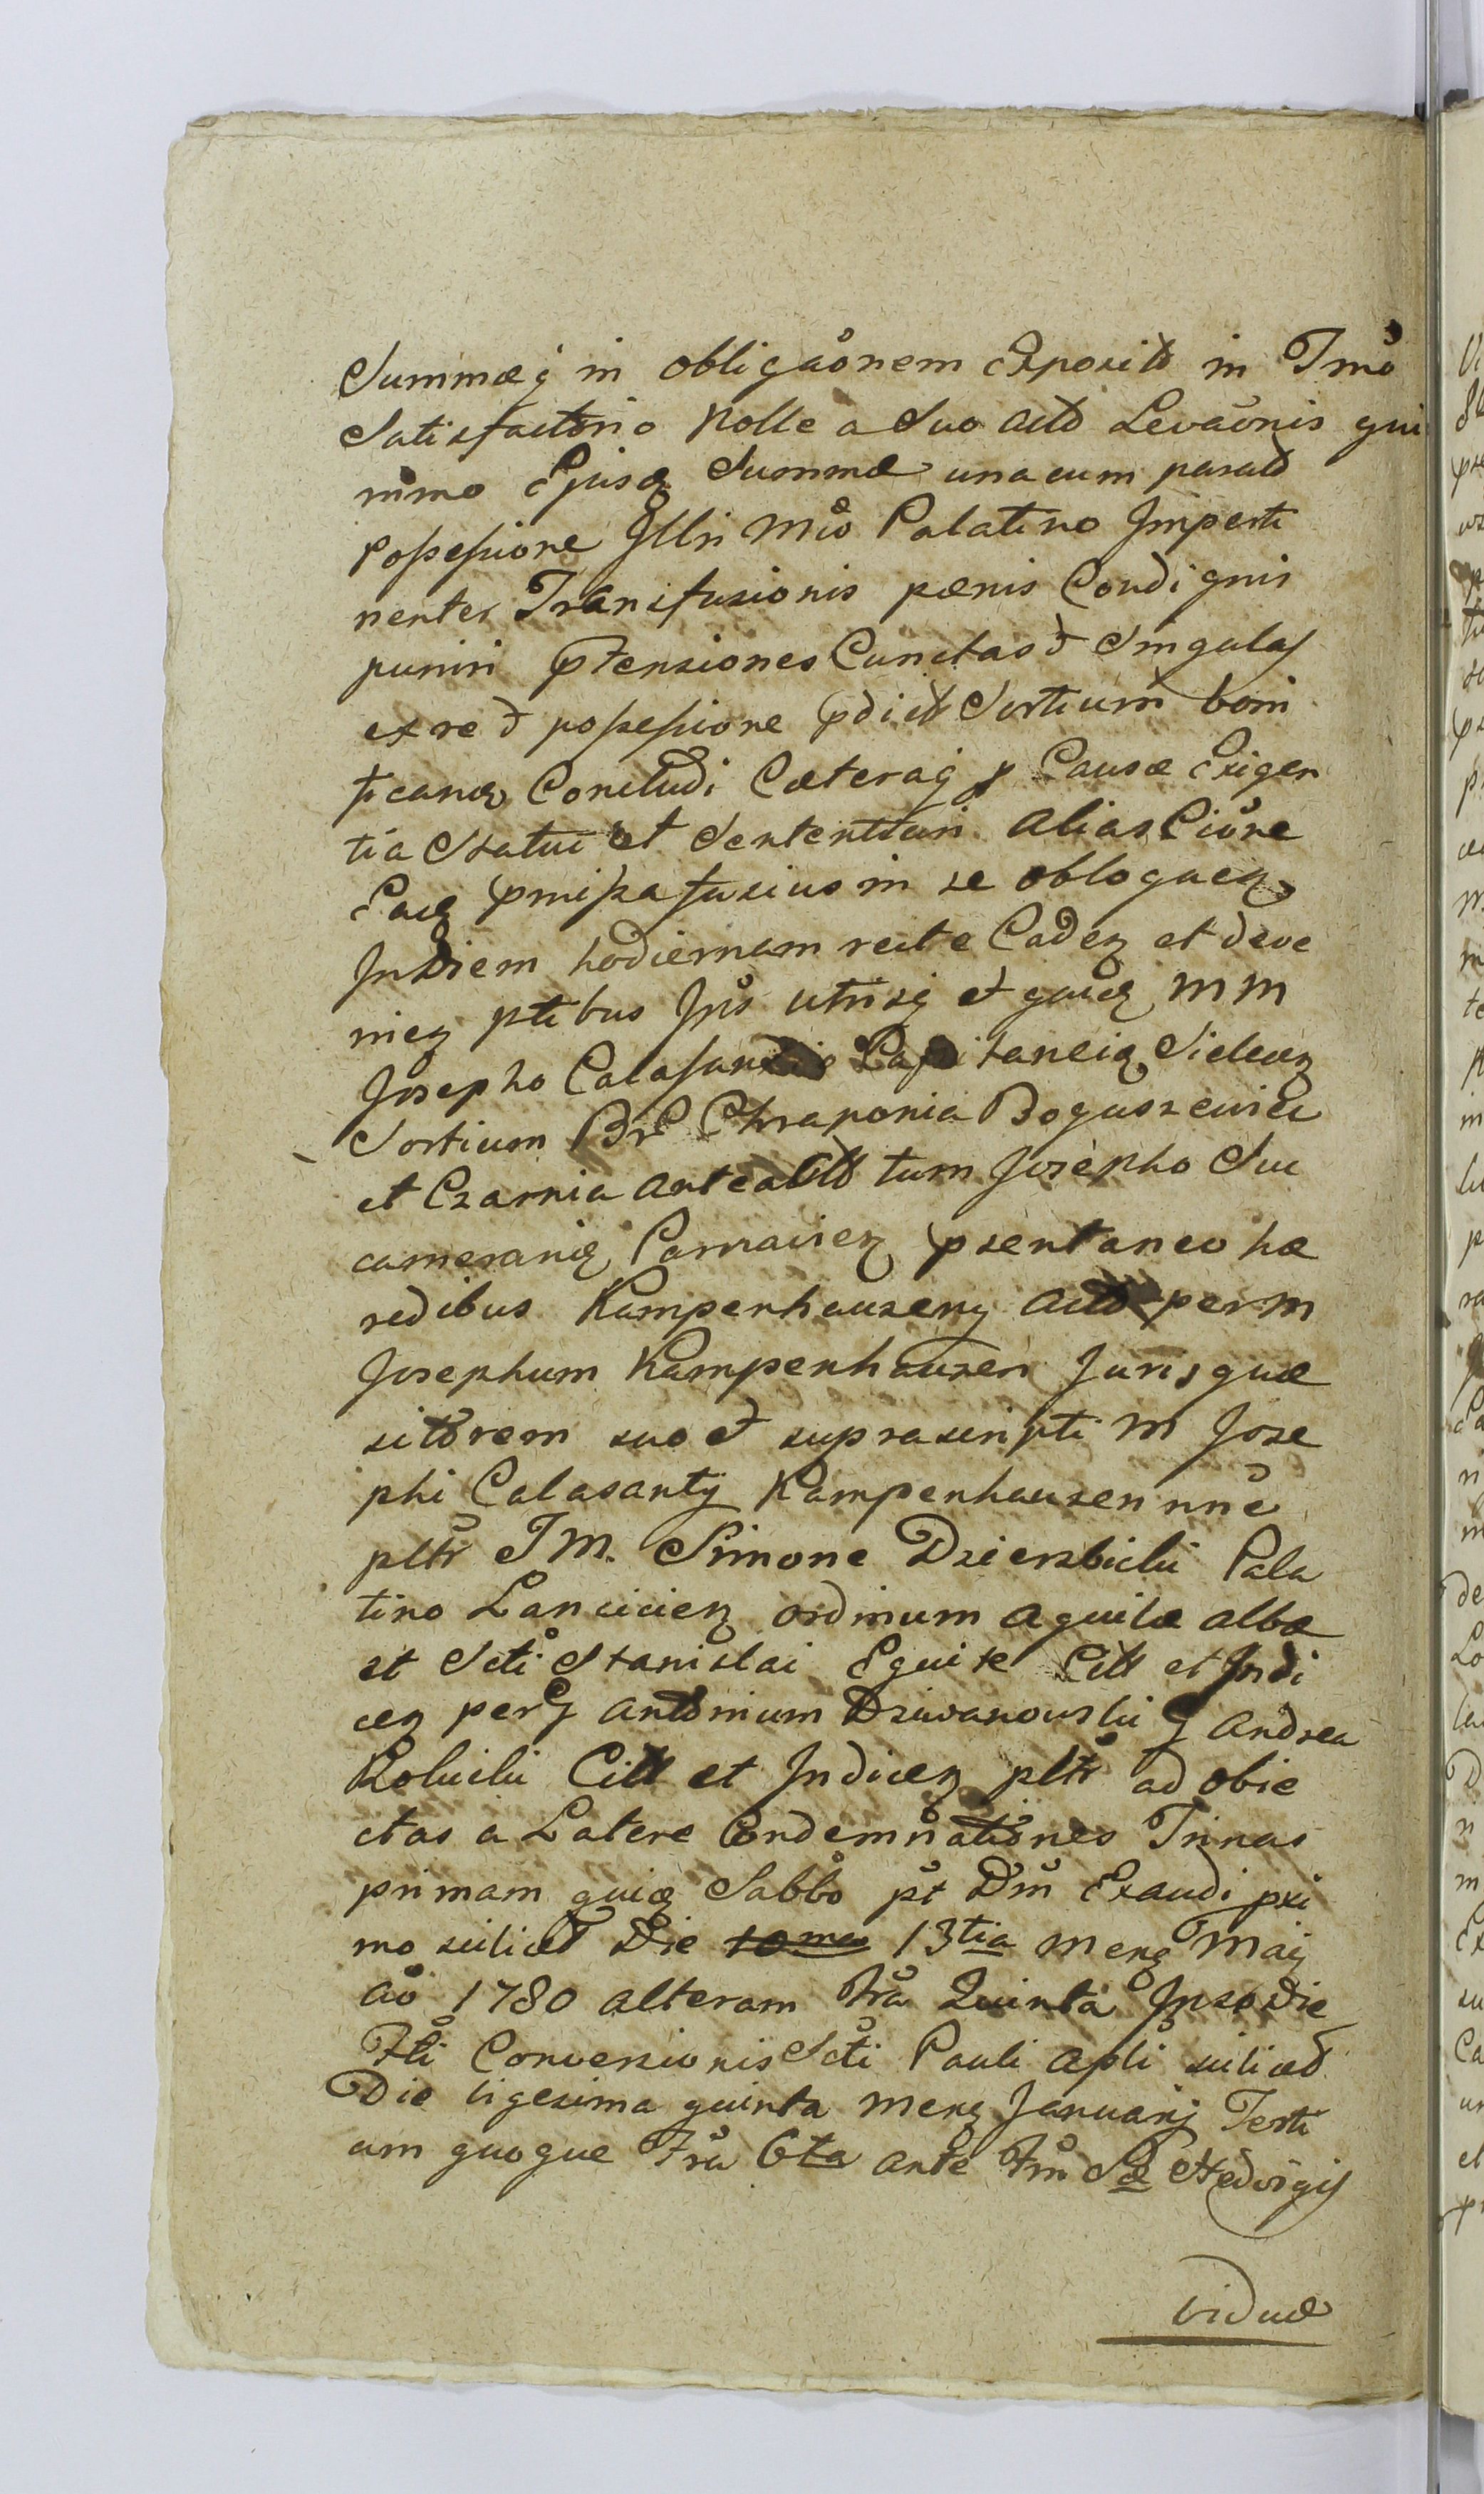 Summæq in obligaonem Exposit in Tmo
Satisfactorio Nolle a Suo acto Levaonis qui
nimo Ejusq Summæ una cum parato
possessione Illri Mco Palatino Imperti
nenter Transfusionis pænis Condignis
puniri prtensiones Cunctas et Singulas
ex re et possessione pdict Sortium boni
ficand Concludi Cæteraq p Causæ Exigen
tia Statui et Sententiari alias Ciône
Eaq pmissa fusius in se obloquen
In Diem hodiernam recte Caden et deve
nien ptibus Ips utrisq et quidem MM
Josepho Calasan Capitaneiq Sielcen
Sortium Br Chraponia Boguszewicz
et Czarnia anteact tum Josepho Suc
cameraniq Parnavien psentaneo hæ
redibus Kampenhauzeny act per M
Josephum Kampenhauzen Jurisquæ
sitorem suo et suprascripti M Jose
phi Calasantij Kampenhauzen nne
pltr I M. Simone Dzierzbicki Pala
tino Lancicien ordinum aquilæ albæ
et Scti Stanislai Equite Citt et Indi
cen per G Antonium Dziwanowski G Andrea
Rolucki Citt et Indicen pltr ad obie
ctas a Latere Condemnationes Trinas
primam quidem Sabbo pt Dm Exaudi pxi
mo scilicet Die 10ma 13tia Mens Maij
ao 1780 alteram fra Quinta Ipso die
Fti Conversionis Scti Pauli Apli scilicet
Die Vigesima quinta Mens Januarij Terti
am quoque Fra 6ta ante Fm Sæ Hedvigis
viduæ